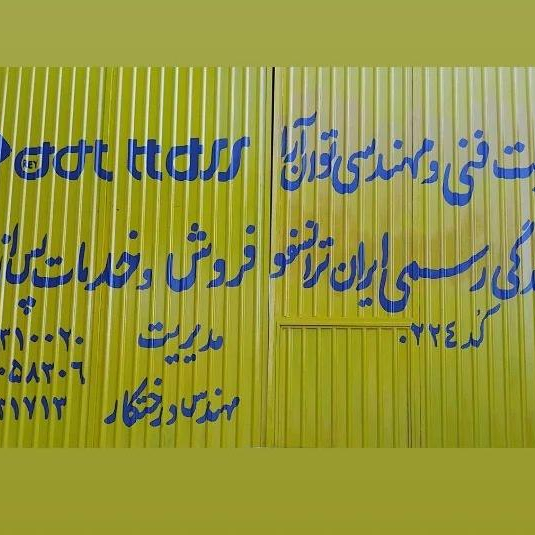 فنی و مهندسی توان آرا
رسمی ایران ترانسفو فروش و خدمات پس از
کد ۰۲۲۴
مدیریت
مهندس درختکار
۳۱۰۰۲۰
۰۵۸۲۰۶
۱۷۱۳
REY